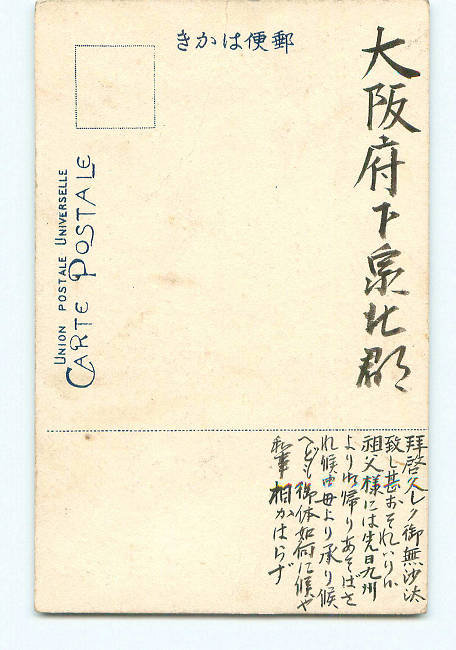 郵便はかき
UNION POSTALE UNIVERSELLE
CARTE POSTALE
大阪府下泉北郡
拝啓久シク御無沙汰
致し甚おそれいり
祖父様には先日九州
より御帰りあそばさ
れ候由母より承り候
へども御体如何に候や
私事相かはらず